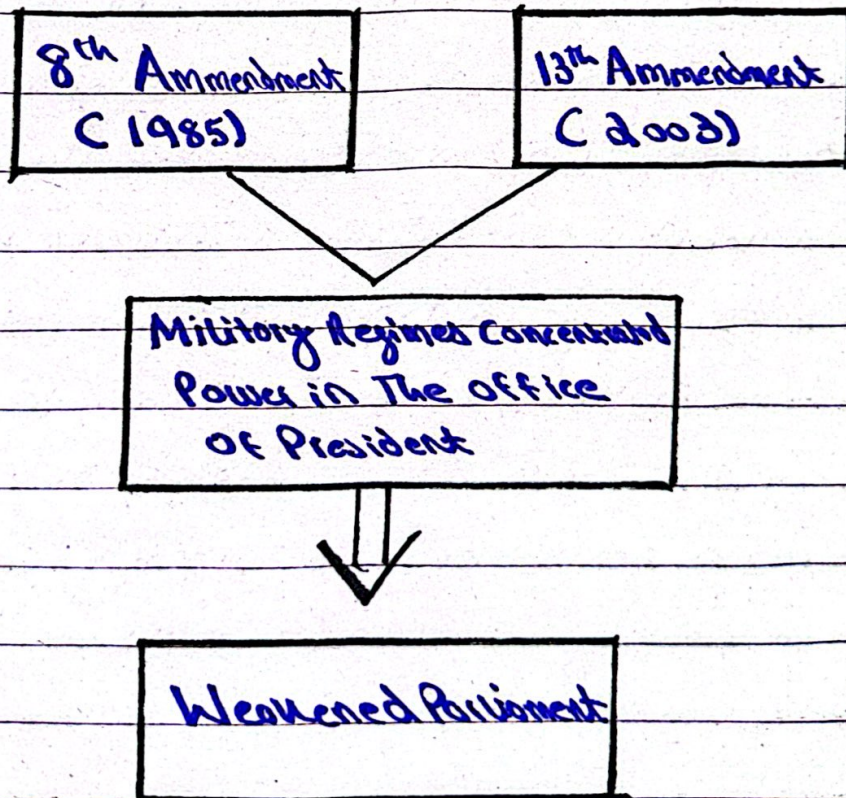 8th Ammendment
(1985)
13th Ammendment
(2003)
Military Regimes Concentrated
Power in The office
of President
Weakened Parliament